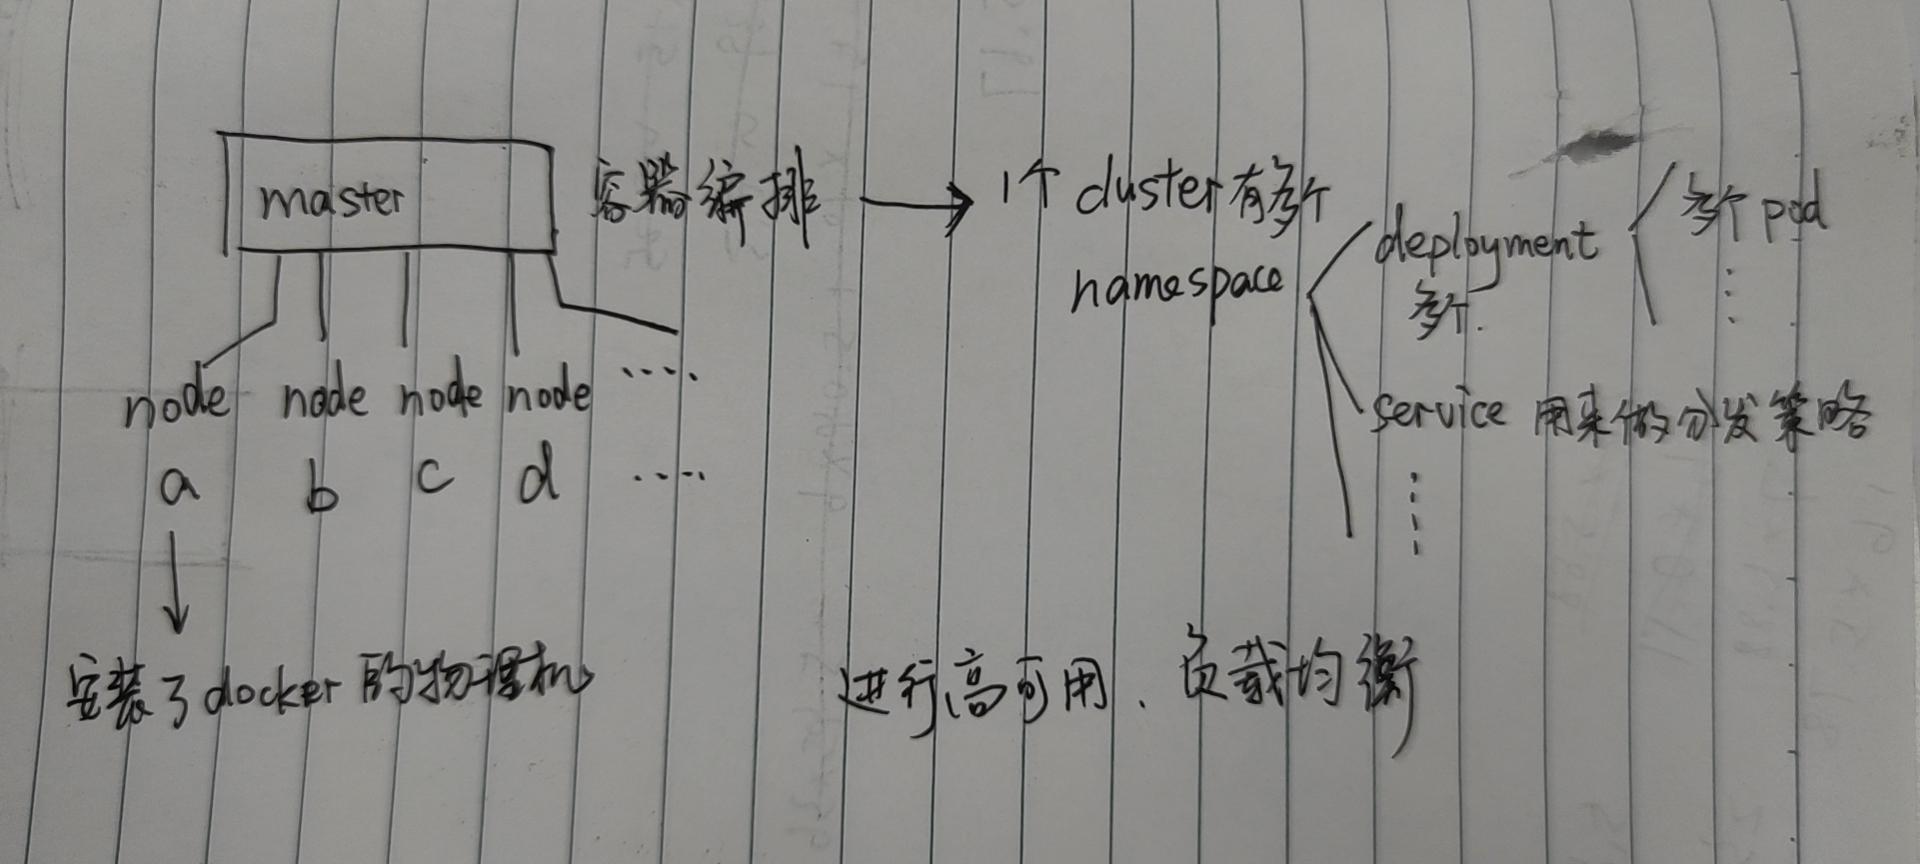 master
容器编排
1个 cluster 有多个
namespace
deployment
多个.
多个 pod
service 用来做分发策略
node node node node ....
a b c d ....
安装了docker的物理机
进行高可用、负载均衡